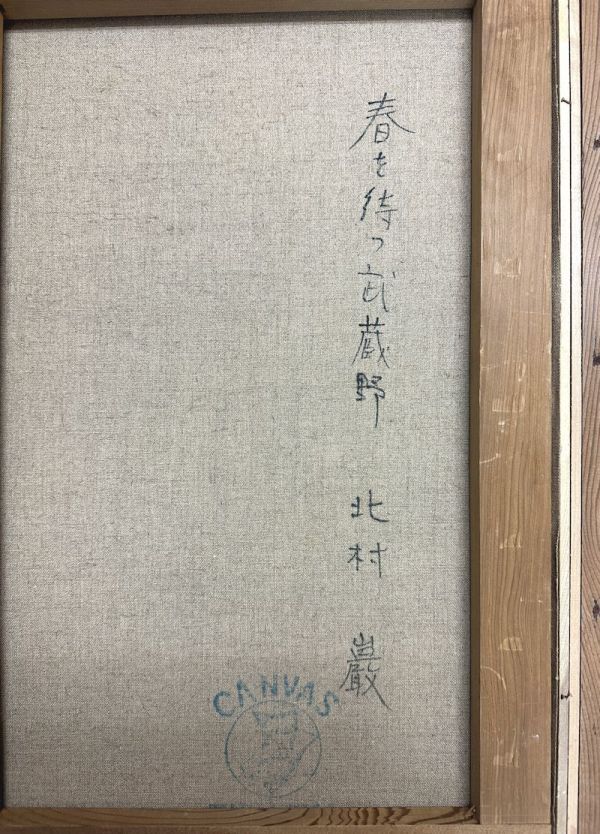 春を待つ武蔵野 北村 巌
CANVAS